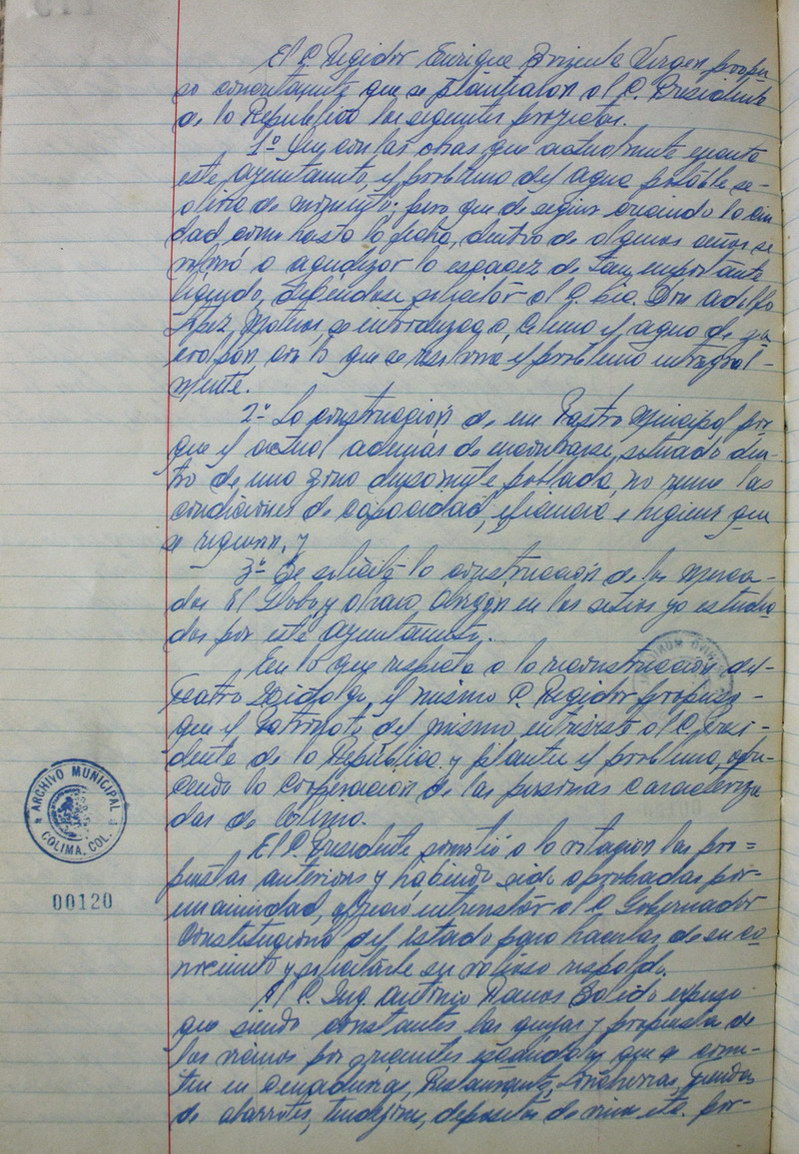 El C. Regidor Enrique Brizuela Virgen propu-
so concretamente que se plantearon al C. Presidente
de la República los siguientes proyectos.
1º Que con las obras que actualmente ejecuta
este Ayuntamiento, el problema del agua potable se
alivia de momento; pero que de seguir creciendo la ciu-
dad como hasta la fecha, dentro de algunos años se
volverá a agudizar la escasez de tan importante
líquido, debiéndose solicitar al C. Lic. Don Adolfo
López Mateos, se entube a Colima el agua de
con lo que se resolverá el problema integral-
mente.
2º La construcción de un Rastro Municipal por-
que el actual además de encontrarse situado den-
tro de una zona densamente poblada, no reune las
condiciones de capacidad, eficiencia e higiene que
se requieren, y
3º Se solicite la construcción de los Merca-
dos El Globo y Alvaro Obregón en los sitios ya estudia-
dos por este Ayuntamiento.
En lo que respecta a la reconstrucción del
Teatro Hidalgo, el mismo C. Regidor propuso
que el Patronato del mismo, entreviste al C. Presi-
dente de la República y plantee el problema, ofre-
ciendo la cooperación de las personas caracteriza-
das de Colima.
El C. Presidente sometió a la votación las pro-
puestas anteriores y habiendo sido aprobadas por
unanimidad, ofreció entrevistar al C. Gobernador
Constitucional del Estado para hacerlas de su co-
nocimiento y solicitarle su valioso respaldo.
El C. Ing. Antonio Ramos Salido expuso
que siendo constantes las quejas y propuesta de
los vecinos por frecuentes escándalos que se come-
ten en Cenadurías, Restaurants, Loncherías, tiendas
de abarrotes, tendajones, depósitos de vino etc. por-
ARCHIVO MUNICIPAL
COLIMA, COL.
00120